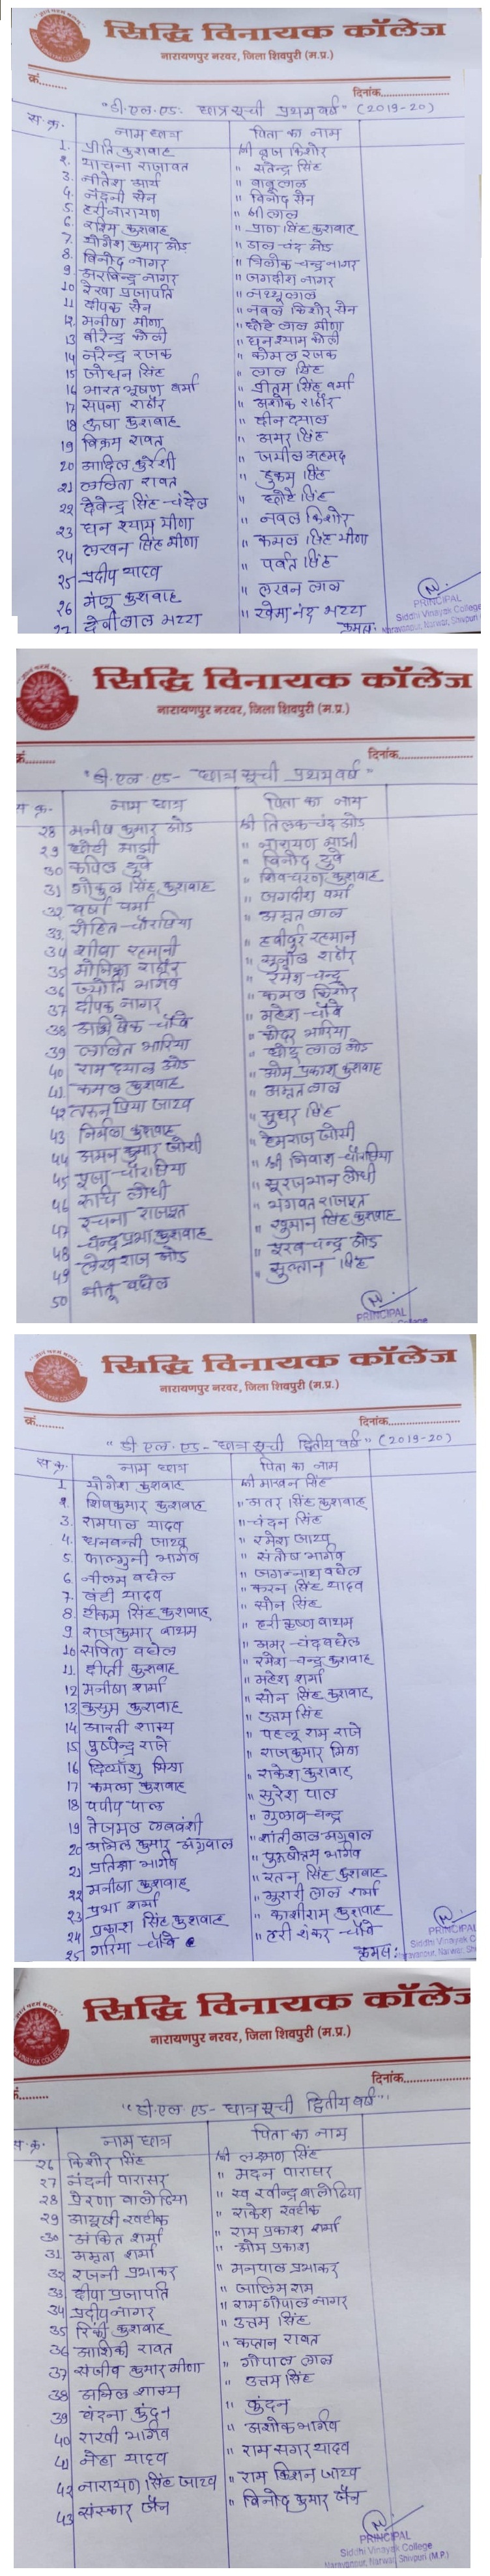 सिद्धि विनायक कॉलेज
नारायणपुर नरवर, जिला शिवपुरी (म.प्र.)
क्रं......... दिनांक.........
"डी.एल.एड. छात्र सूची प्रथम वर्ष" (2019-20)
स.क्र. नाम छात्र पिता का नाम
1. प्रीति कुशवाह श्री बृज किशोर
2. याचना राजावत " सतेन्द्र सिंह
3. नीतेश आर्य " बाबूलाल
4. नंदनी सेन " विनोद सेन
5. हरीनारायण " श्री लाल
6. रश्मि कुशवाह " प्राण सिंह कुशवाह
7. योगेश कुमार ओड " डाल चंद ओड
8. विनोद नागर " त्रिलोक चन्द्र नागर
9. अरविन्द्र नागर " जगदीश नागर
10 रेखा प्रजापति " नत्थूलाल
11 दीपक सेन " नवल किशोर सेन
12. मनीषा मीणा " छोटे लाल मीणा
13 वीरेन्द्र कोली " घनश्याम कोली
14 नरेन्द्र रजक " कोमल रजक
15 जोधन सिंह " लाल सिंह
16 भारत भूषण वर्मा " प्रीतम सिंह वर्मा
17 सपना राठौर " अशोक राठौर
18 ऊषा कुशवाह " दीन दयाल
19 विक्रम रावत " अमर सिंह
20 आदिल कुरैशी " जमील अहमद
21 ललिता रावत " हुकम सिंह
22 देवेन्द्र सिंह चंदेल " छोटे सिंह
23 घनश्याम मीणा " नवल किशोर
24 लखन सिंह मीणा " कमल सिंह मीणा
25 प्रदीप यादव " पर्वत सिंह
26 मंजू कुशवाह " लखन लाल
27 देवीलाल भट्ट " खेमानंद भट्ट
क्रमश:
PRINCIPAL
Siddhi Vinayak College
Narayanpur, Narwar, Shivpuri
सिद्धि विनायक कॉलेज
नारायणपुर नरवर, जिला शिवपुरी (म.प्र.)
क्रं......... दिनांक.........
"डी.एल.एड- छात्र सूची प्रथम वर्ष"
स.क्र. नाम छात्र पिता का नाम
28 मनीष कुमार ओड श्री तिलक चंद ओड
29 छोटी माझी " नारायण माझी
30 कपिल दुबे " विनोद दुबे
31 गोकुल सिंह कुशवाह " शिवचरण कुशवाह
32 वर्षा वर्मा " जगदीश वर्मा
33 रोहित चौरसिया " अमृत लाल
34 शीबा रहमानी " हबीबुर रहमान
35 मोनिका राठौर " सुनील राठौर
36 ज्योति भार्गव " रमेश चन्द्र
37 दीपक नागर " कमल किशोर
38 अभिषेक चौबे " महेश चौबे
39 ललित भारिया " भारिया
40 राम दयाल ओड " छोटू लाल ओड
41 कमल कुशवाह " ओम प्रकाश कुशवाह
42 प्रिया जाटव " अमृत लाल
43 निर्मला कुशवाह " सुघर सिंह
44 अमन कुमार जोशी " हेमराज जोशी
45 पूजा चौरसिया " श्री निवास चौरसिया
46 रूचि लोधी " सूरजभान लोधी
47 रचना राजपूत " भगवत राजपूत
48 चन्द्रप्रभा कुशवाह " खुमान सिंह कुशवाह
49 लेखराज ओड " चन्द्र ओड
50 नीतू बघेल " सुल्तान सिंह
PRINCIPAL
सिद्धि विनायक कॉलेज
नारायणपुर नरवर, जिला शिवपुरी (म.प्र.)
क्रं......... दिनांक.........
"डी एल.एड- छात्र सूची द्वितीय वर्ष" (2019-20)
स.क्र. नाम छात्र पिता का नाम
1 योगेश कुशवाह श्री माखन सिंह
2. शिवकुमार कुशवाह " अतर सिंह कुशवाह
3. रामपाल यादव " चंदन सिंह
4. धनवन्ती जाटव " रमेश जाटव
5. फाल्गुनी भार्गव " संतोष भार्गव
6. नीलम बघेल " जगन्नाथ बघेल
7. बंटी यादव " करन सिंह यादव
8. टीकम सिंह कुशवाह " सोन सिंह
9 राजकुमार बाथम " हरी कृष्ण बाथम
10 सविता बघेल " अमर चंद बघेल
11. दीप्ती कुशवाह " रमेश चन्द्र कुशवाह
12 मनीषा शर्मा " महेश शर्मा
13. कुसुम कुशवाह " सोन सिंह कुशवाह
14 आरती शाक्य " उत्तम सिंह
15 पुष्पेन्द्र राजे " पहलू राम राजे
16 दिव्यांशु मिश्रा " राजकुमार मिश्रा
17 कमला कुशवाह " राकेश कुशवाह
18 पाल " सुरेश पाल
19 तेजमल लववंशी " गुलाब चन्द्र
20 अनिल कुमार अग्रवाल " शांतीलाल अग्रवाल
21 प्रतिक्षा भार्गव " पुरूषोत्तम भार्गव
22 मनीषा कुशवाह " रतन सिंह कुशवाह
23 प्रभा शर्मा " मुरारी लाल शर्मा
24 प्रकाश सिंह कुशवाह " काशीराम कुशवाह
25 गरिमा चौबे " हरी शंकर चौबे
क्रमश:
PRINCIPAL
Siddhi Vinayak C
Narayanpur, Narwar, Sh
सिद्धि विनायक कॉलेज
नारायणपुर नरवर, जिला शिवपुरी (म.प्र.)
क्रं......... दिनांक.........
"डी.एल.एड- छात्र सूची द्वितीय वर्ष"
स.क्र. नाम छात्र पिता का नाम
26 किशोर सिंह श्री लक्ष्मण सिंह
27 नंदनी पारासर " मदन पारासर
28 प्रेरणा वालोदिया " स्व रवीन्द्र वालोदिया
29 आयुषी खटीक " राकेश खटीक
30 अंकित शर्मा " राम प्रकाश शर्मा
31 अमृता शर्मा " ओम प्रकाश
32 रजनी प्रभाकर " मनपाल प्रभाकर
33 दीपा प्रजापति " जालिम राम
34 प्रदीप नागर " राम गोपाल नागर
35 रिंकी कुशवाह " उत्तम सिंह
36 आशिकी रावत " कप्तान रावत
37 संजीव कुमार मीणा " गोपाल लाल
38 अनिल शाक्य " उत्तम सिंह
39 वंदना कुंदन " कुंदन
40 राखी भार्गव " अशोक भार्गव
41 नेहा यादव " राम सागर यादव
42 नारायण सिंह जाटव " राम किशन जाटव
43 संस्कार जैन " विनोद कुमार जैन
PRINCIPAL
Siddhi Vinayak College
Narayanpur, Narwar, Shivpuri (M.P.)